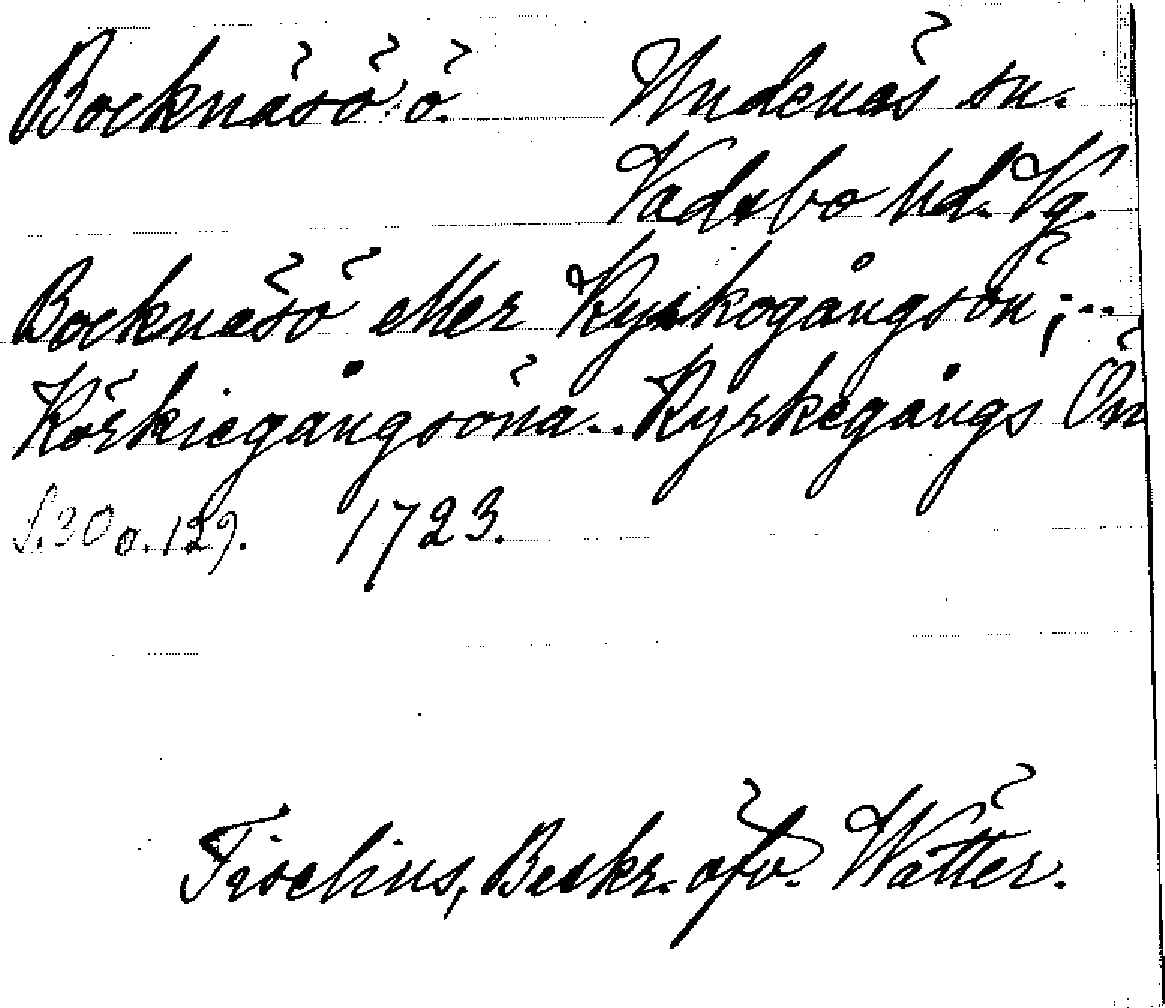 Bocknäsö ö. Undenäs sn.
Vadsbo hd. Vg.
Bocknäsö eller Kyrkogångsön; ..
Körkiegångsöna.. Kyrkegångs Ön
S. 30 o. 129. 1723.
Tiselius, Beskr. öfv. Wätter.